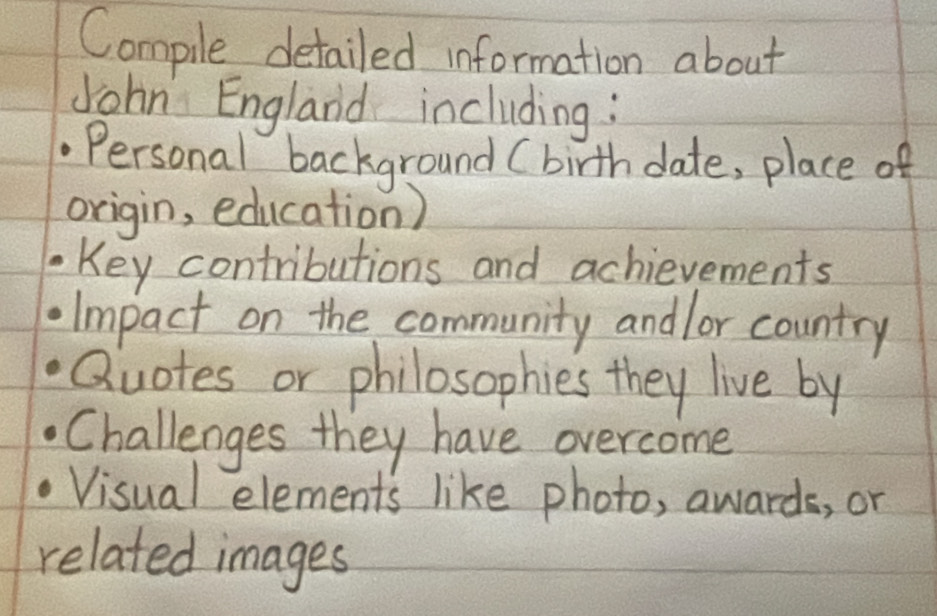 Compile detailed information about
John England including:
• Personal background (birth date, place of
origin, education)
• Key contributions and achievements
• Impact on the community and/or country
• Quotes or philosophies they live by
• Challenges they have overcome
• Visual elements like photo, awards, or
related images